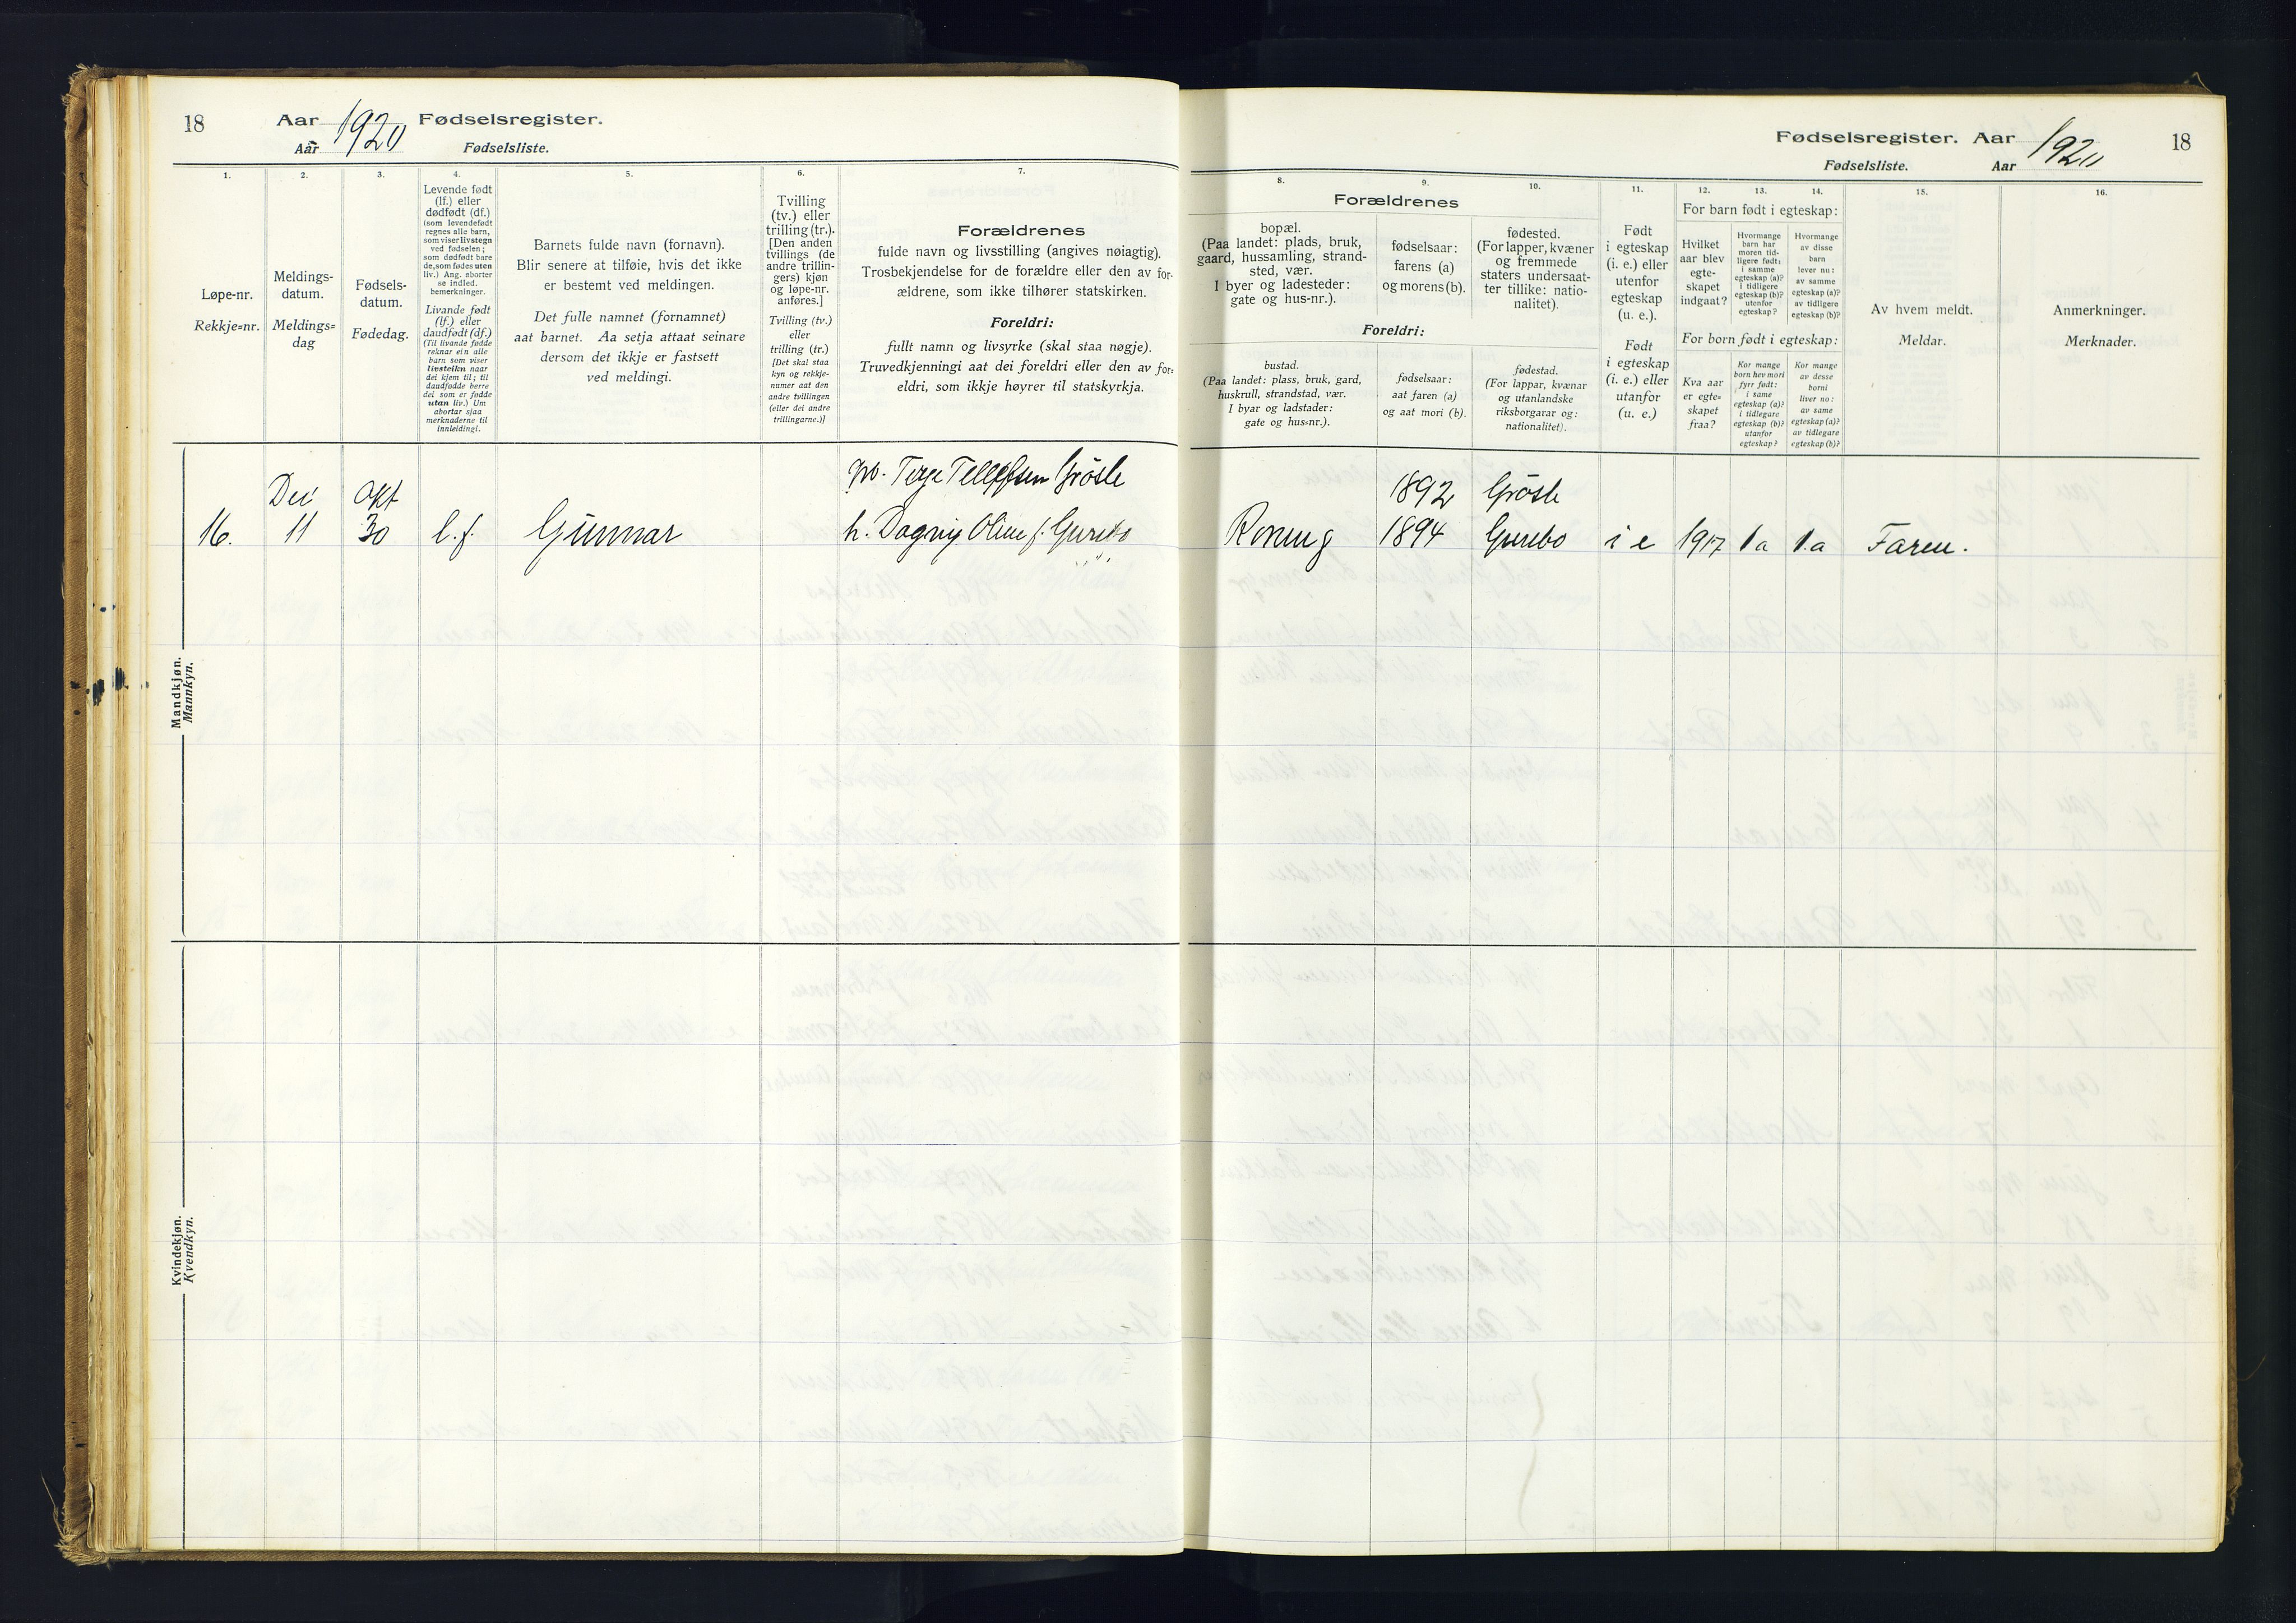 18
Aar 1920 Fødselsregister.
Aar Fødselsliste.
1.
2.
3.
4.
5.
6.
7.
Løpe-nr.
Rekkje=nr.
Meldings-
datum.
Meldings=
dag
Fødsels-
datum.
Fødedag.
Levende født
(lf.) eller
dødfødt (df.)
(som levendefødt
regnes alle barn,
som viser livstegn
ved fødselen;
som dødfødt bare
de, som fødes uten
liv.) Ang. aborter
se indled.
bemerkninger.
Livande født
(lf.) eller
daudfødt (df.)
(Til livande fødde
reknar ein alle
barn som viser
livsteikn naar
dei kjem til; til
daudfødde berre
dei som er fødde
utan liv.) Um
abortar sjaa
merknaderne til
innleidingi.
Barnets fulde navn (fornavn).
Blir senere at tilføie, hvis det ikke
er bestemt ved meldingen.
Det fulle namnet (fornamnet)
aat barnet. Aa setja attaat seinare
dersom det ikkje er fastsett
ved meldingi.
Tvilling
(tv.) eller
trilling (tr.).
[Den anden
tvillings (de
andre trillin-
gers) kjøn
og løpe-nr.
anføres.]
Tvilling (tv.)
eller
trilling (tr.)
[Det skal staa
kyn og rekkje-
numer aat den
andre tvillingen
(eller dei andre
trillingarne.)]
Forældrenes
fulde navn og livsstilling (angives nøiagtig).
Trosbekjendelse for de forældre eller den av for-
ældrene, som ikke tilhører statskirken.
Foreldri:
fullt namn og livsyrke (skal staa nøgje).
Truvedkjenningi aat dei foreldri eller den av for=
eldri, som ikkje høyrer til statskyrkja.
Mandkjøn.
Mannkyn.
Terje Tellefsen Grösle
Dec Okt
16. 11 30 l.f. Gunnar h. Dagny Oline f. Gurebo
Kvindekjøn.
Kvendkyn.
Fødselsregister. Aar 1920 18
Fødselsliste. Aar
8.
9.
10.
11.
12.
13.
14.
15.
16.
Forældrenes
bopæl.
(Paa landet: plads, bruk,
gaard, hussamling, strand-
sted, vær.
I byer og ladesteder:
gate og hus-nr.).
fødselsaar:
farens (a)
og morens (b).
fødested.
(For lapper, kvæner
og fremmede
staters undersaat-
ter tillike: natio-
nalitet).
Foreldri:
bustad.
(Paa landet: plass, bruk, gard,
huskrull, strandstad, vær.
I byar og ladstader:
gate og hus=nr.).
fødselsaar:
aat faren (a)
og aat mori (b).
fødestad.
(For lappar, kvænar
og utanlandske
riksborgarar og:
nationalitet).
Født
i egteskap
(i. e.) eller
utenfor
egteskap
(u. e.).
Født
i egteskap
(i. e.) eller
utanfor
(u. e.)
For barn født i egteskap:
Hvilket
aar blev
egte-
skapet
indgaat?
Hvormange
barn har
moren tid-
ligere født:
i samme
egteskap (a)?
i tidligere
egteskap (b)?
utenfor
egteskap?
Hvormange
av disse
barn
lever nu:
av samme
egteskap (a)?
av tidligere
egteskap (b)?
For born født i egteskap:
Kva aar
er egte=
skapet
fraa?
Kor mange
born hev mori
fyrr født:
i same
egteskap (a)?
i tidlegare
egteskap (b)?
utanfor
egteskap?
Kor mange
av desse
borni
liver no:
av same
egteskap (a)?
av tidlegare
egteskap (b)?
Av hvem meldt.
Meldar.
Anmerkninger.
Merknader.
1892 Grösle
1894 Gurebo i e 1917 1 a 1.a Faren.